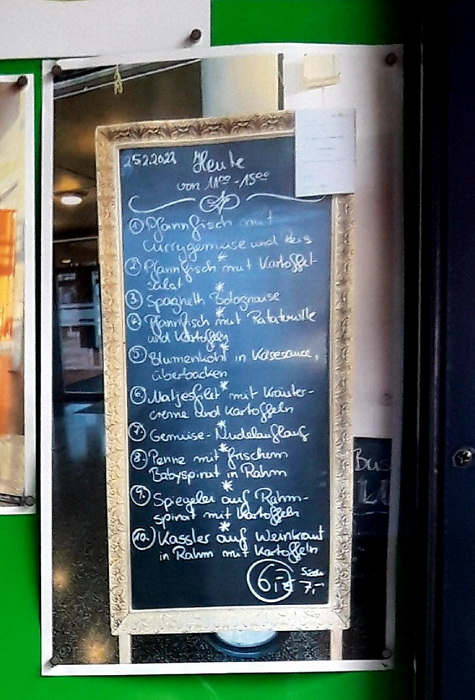 25.2.2022 Heute
von 11⁰⁰-15⁰⁰
① Pfannfisch mit
Currygemüse und Reis
*
② Pfannfisch mit Kartoffel-
salat
*
③ Spaghetti Bolognaise
*
④ Pfannfisch mit Ratatuille
und Kartoffeln
*
⑤ Blumenkohl in Käsesauce,
überbacken
*
⑥ Matjesfilet mit Kräuter-
creme und Kartoffeln
*
⑦ Gemüse-Nudelauflauf
*
⑧ Penne mit frischem
Babyspinat in Rahm
*
⑨ Spiegelei auf Rahm-
spinat mit Kartoffeln
*
⑩ Kassler auf Weinkraut
in Rahm mit Kartoffeln
6,-€
7,-